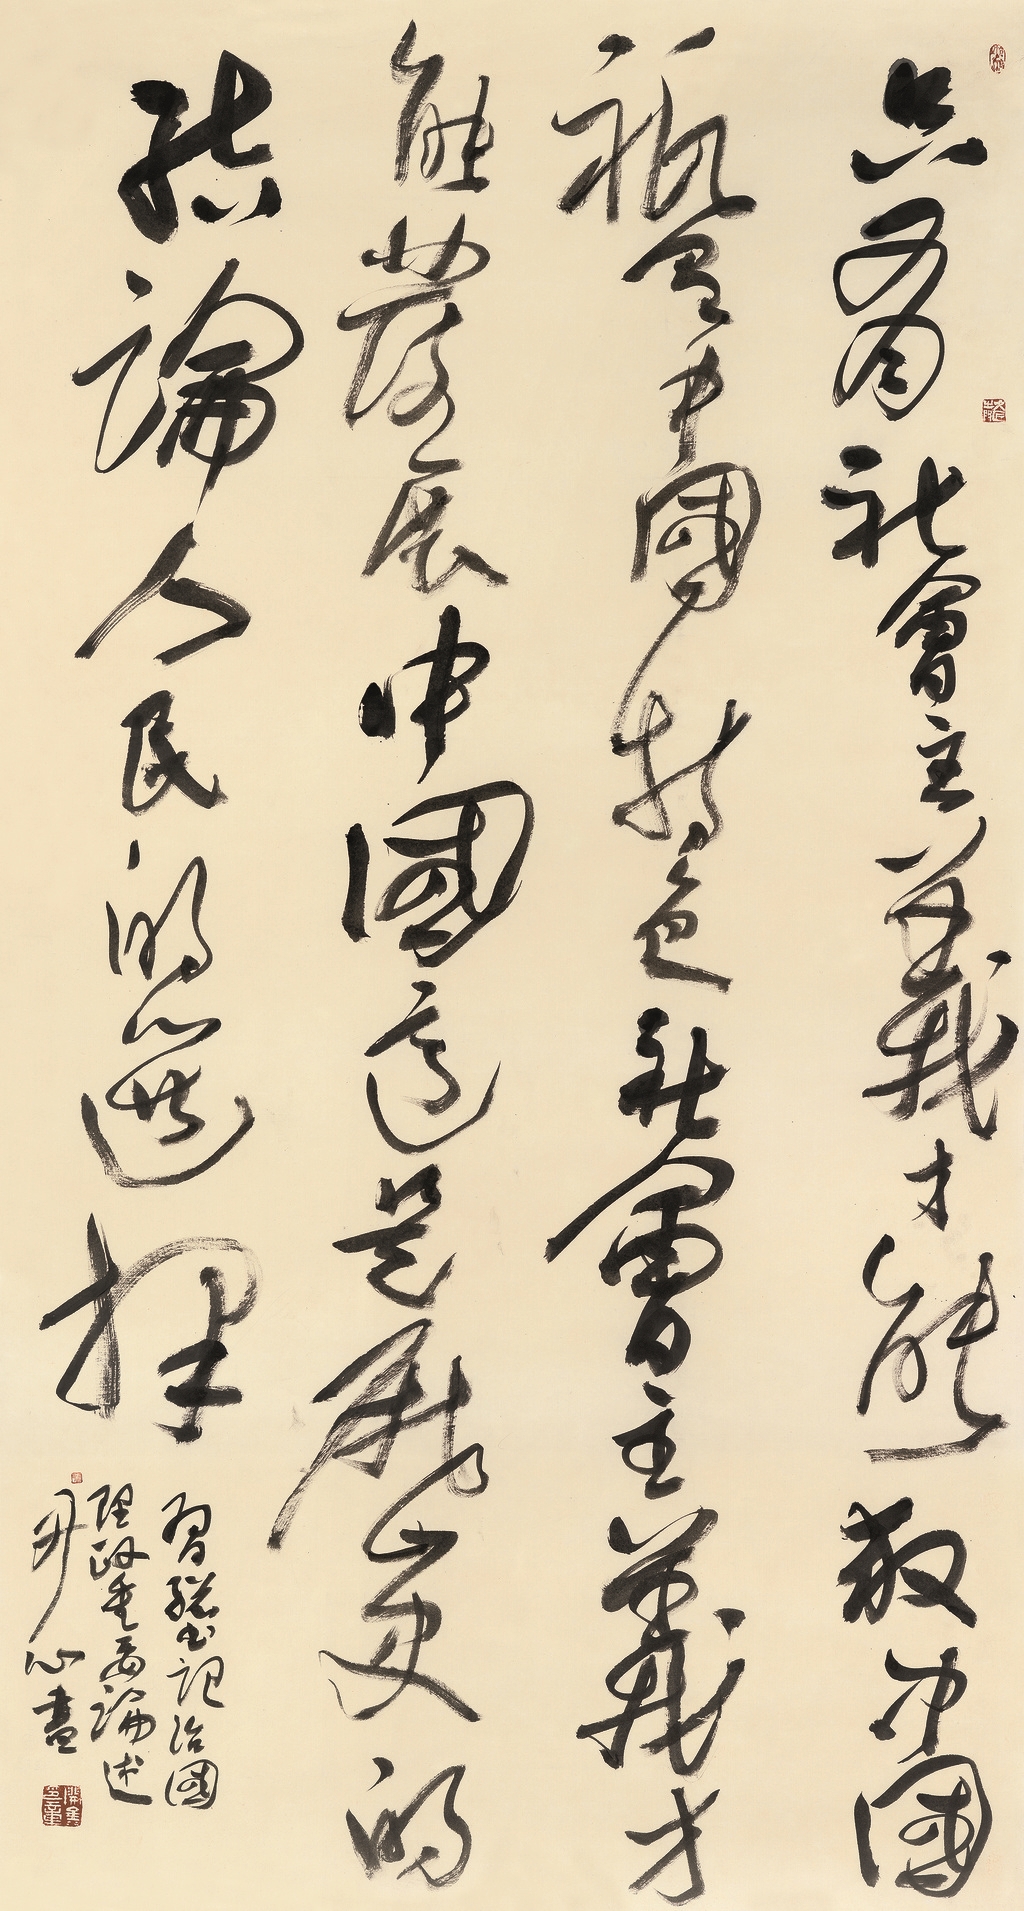 只有社會主義才能救中國
祇有中國特色社會主義才
能發展中國這是歷史的
結論人民的選擇
習總書記治國
理政重要論述
心畫